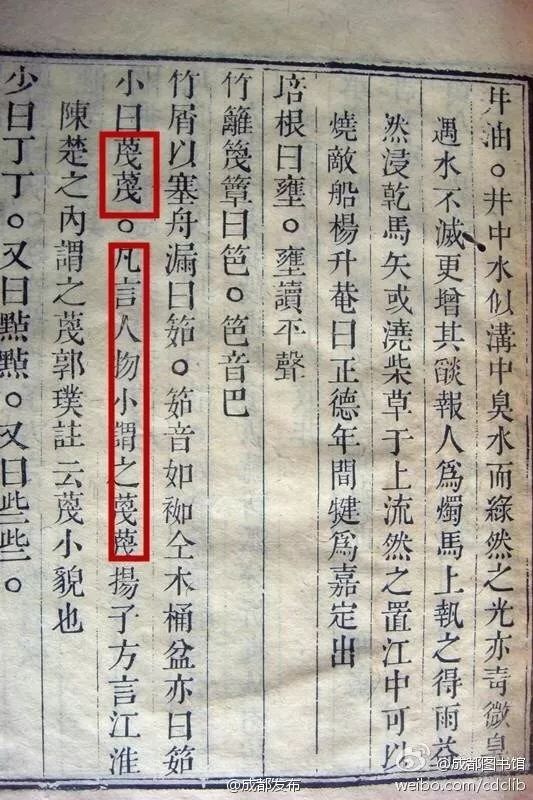 井油。井中水似溝中臭水而綠然之光亦靑微臭
遇水不滅更增其燄報人爲燭馬上執之得雨益
然浸乾馬矢或澆柴草于上流然之置江中可以
燒敵船楊升菴曰正德年間犍爲嘉定出
培根曰壅。壅讀平聲
竹籬篾簟曰笆。笆音巴
竹屑以塞舟漏曰筎。筎音如袽仝木桶盆亦曰筎
小曰蔑蔑。凡言人物小謂之蔑蔑揚子方言江淮
陳楚之內謂之蔑郭璞註云蔑小貌也
少曰丁丁。又曰點點。又曰些些。
@成都图书馆
weibo.com/cdclib
@成都发布